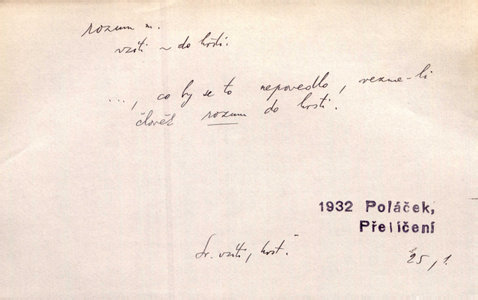 rozum m.
vzíti ~ do hrsti.
..., co by se to nepovedlo, vezme-li
člověk rozum do hrsti.
1932 Poláček,
Přelíčení
Sr. vzíti, hrst.
25, 1.